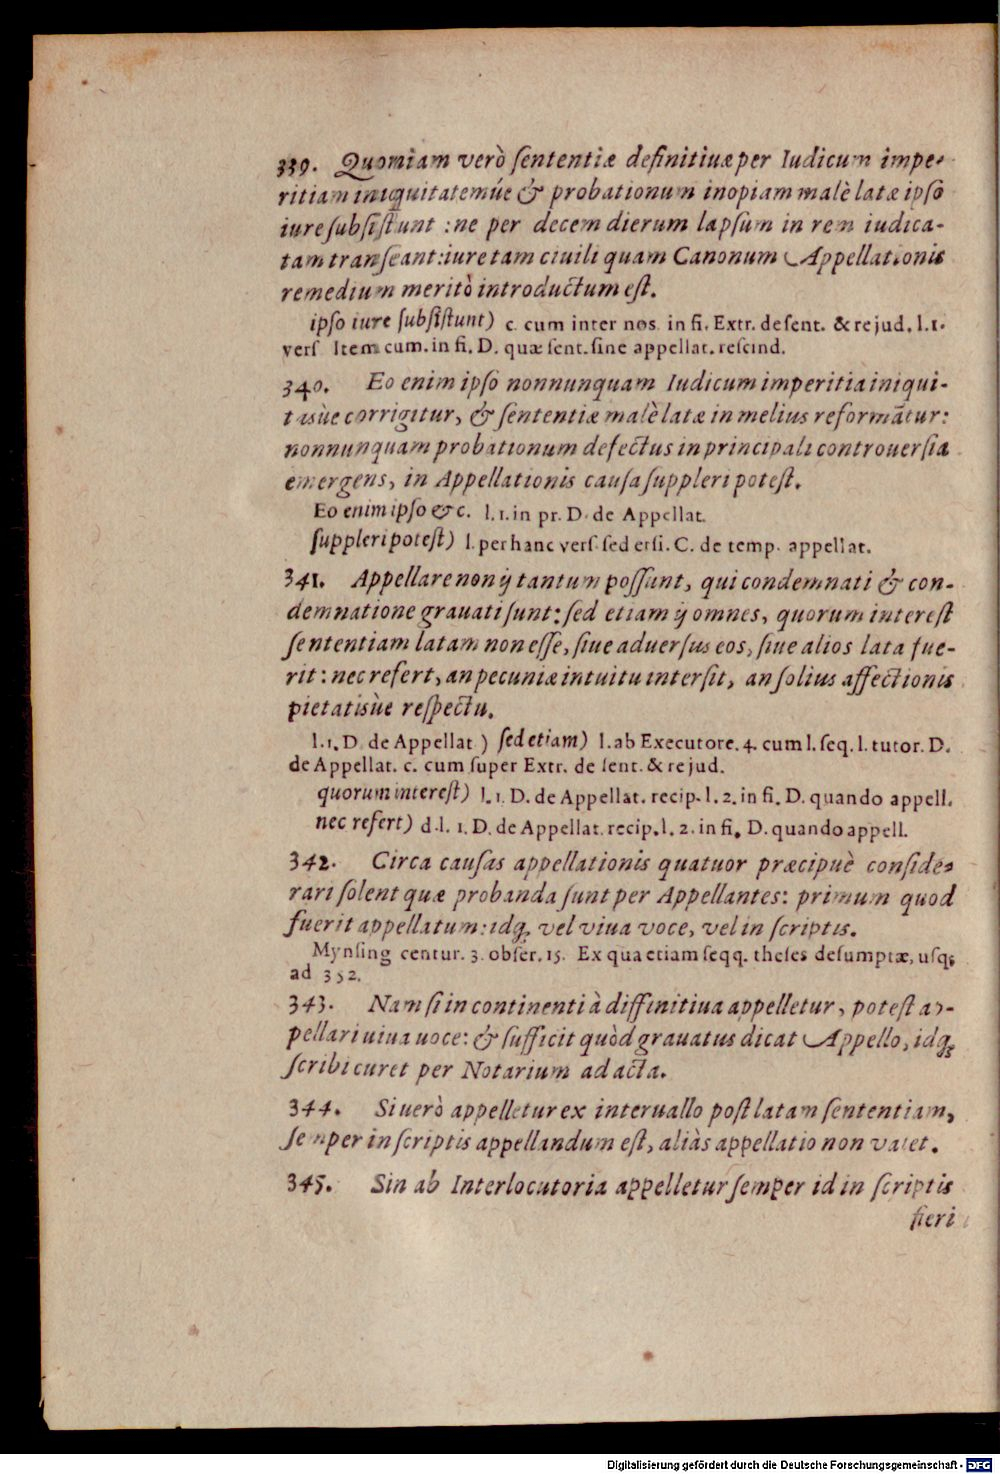 339. Quoniam verò ſententiæ definitiuæ per Iudicum impe-
ritiam iniquitatemúe & probationum inopiam malè latæ ipſo
iure ſubſiſtunt : ne per decem dierum lapſum in rem iudica-
tam tranſeant: iure tam ciuili quam Canonum Appellationis
remedium meritò introductum eſt.
ipſo iure ſubſiſtunt) c. cum inter nos in fi. Extr. de ſent. & re jud. l. 1.
verſ Item cum. in fi. D. quæ ſent. ſine appellat. reſcind.
340. Eo enim ipſo nonnunquam Iudicum imperitia iniqui-
tasùe corrigitur, & ſententiæ malè latæ in melius reformātur:
nonnunquam probationum defectus in principali controuerſia
emergens, in Appellationis cauſa ſuppleri poteſt.
Eo enim ipſo & c. l. 1. in pr. D. de Appellat.
ſuppleri poteſt) l. per hanc verſ. ſed etſi. C. de temp. appellat.
341. Appellare non ij tantum poſſunt, qui condemnati & con-
demnatione grauati ſunt: ſed etiam ij omnes, quorum intereſt
ſententiam latam non eſſe, ſiue aduerſus eos, ſiue alios lata fue-
rit: nec refert, an pecuniæ intuitu interſit, an ſolius affectionis
pietatisùe reſpectu.
l. 1. D. de Appellat ) ſed etiam) l. ab Executore. 4. cum l. ſeq. l. tutor. D.
de Appellat. c. cum ſuper Extr. de ſent. & re jud.
quorum intereſt) l. 1. D. de Appellat. recip. l. 2. in fi. D. quando appell.
nec refert) d. l. 1. D. de Appellat. recip. l. 2. in fi. D. quando appell.
342. Circa cauſas appellationis quatuor præcipuè conſide-
rari ſolent quæ probanda ſunt per Appellantes: primum quod
fuerit appellatum: idq́; vel viua voce, vel in ſcriptis.
Mynſing centur. 3. obſer. 15. Ex qua etiam ſeqq. theſes deſumptæ, uſq;
ad 352.
343. Nam ſi in continenti à diffinitiua appelletur, poteſt ap-
pellari uiua uoce: & ſufficit quòd grauatus dicat Appello, idq́;
ſcribi curet per Notarium ad acta.
344. Si uerò appelletur ex interuallo poſt latam ſententiam,
ſemper in ſcriptis appellandum eſt, aliàs appellatio non valet.
345. Sin ab Interlocutoria appelletur ſemper id in ſcriptis
fieri
Digitalisierung gefördert durch die Deutsche Forschungsgemeinschaft - DFG